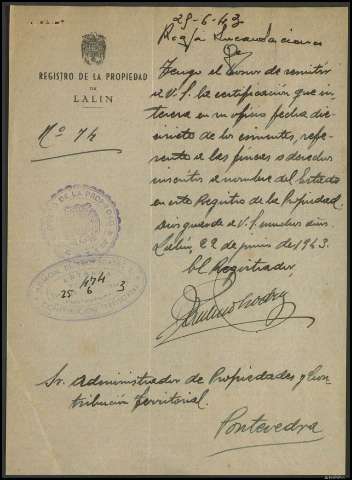 29-6-43
REGISTRO DE LA PROPIEDAD
DE
LALIN
Nº 74
Tengo el honor de remitir
a V.S. la certificación que in-
teresa en su oficio fecha die-
cinueve de los corrientes, refe-
rente a las fincas o derechos
inscritos a nombre del Estado
en este Registro de la Propiedad.
Dios guarde a V.S. muchos años.
Lalín, 22 de junio de 1943.
El Registrador,
DE LA PROPIEDAD
474
25 6 3
Sr. Administrador de Propiedades y Con-
tribución Territorial.
Pontevedra